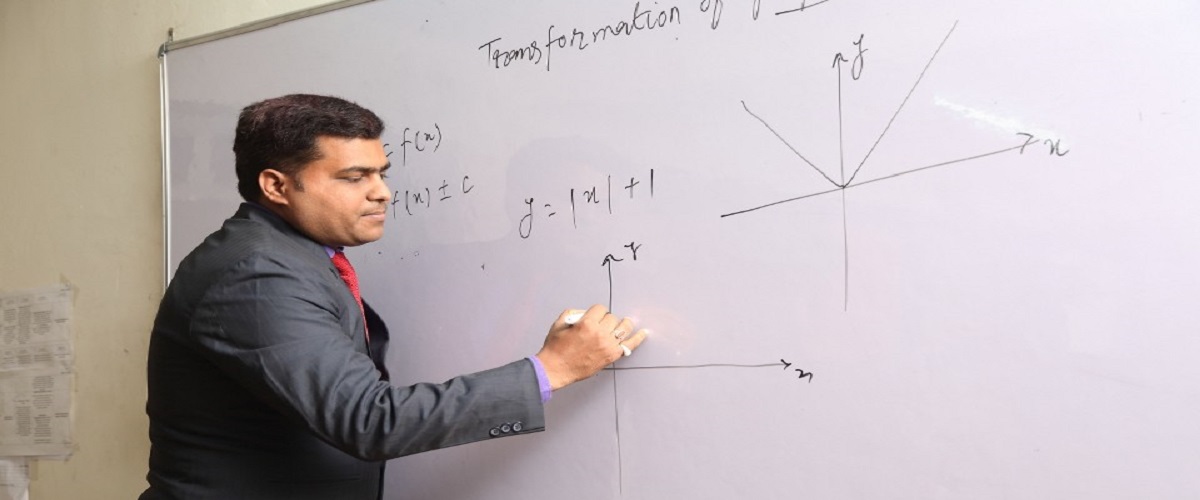 Transformation of
= f(x)
f(x) ± c
y = |x| + 1
y
x
y
x